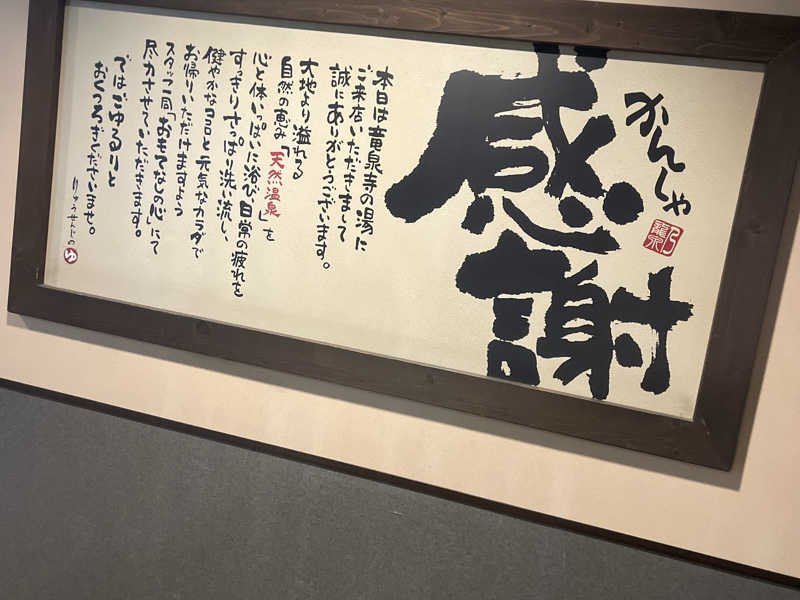 かんしゃ
感謝
本日は竜泉寺の湯に
ご来店いただきまして
誠にありがとうございます。
大地より溢れる
自然の恵み「天然温泉」を
心と体いっぱいに浴び日常の疲れを
すっきりさっぱり洗い流し、
健やかなココロと元気なカラダで
お帰りいただけますよう
スタッフ一同「おもてなしの心」にて
尽力させていただきます。
ではごゆるりと
おくつろぎくださいませ。
りゅうせんじの ゆ